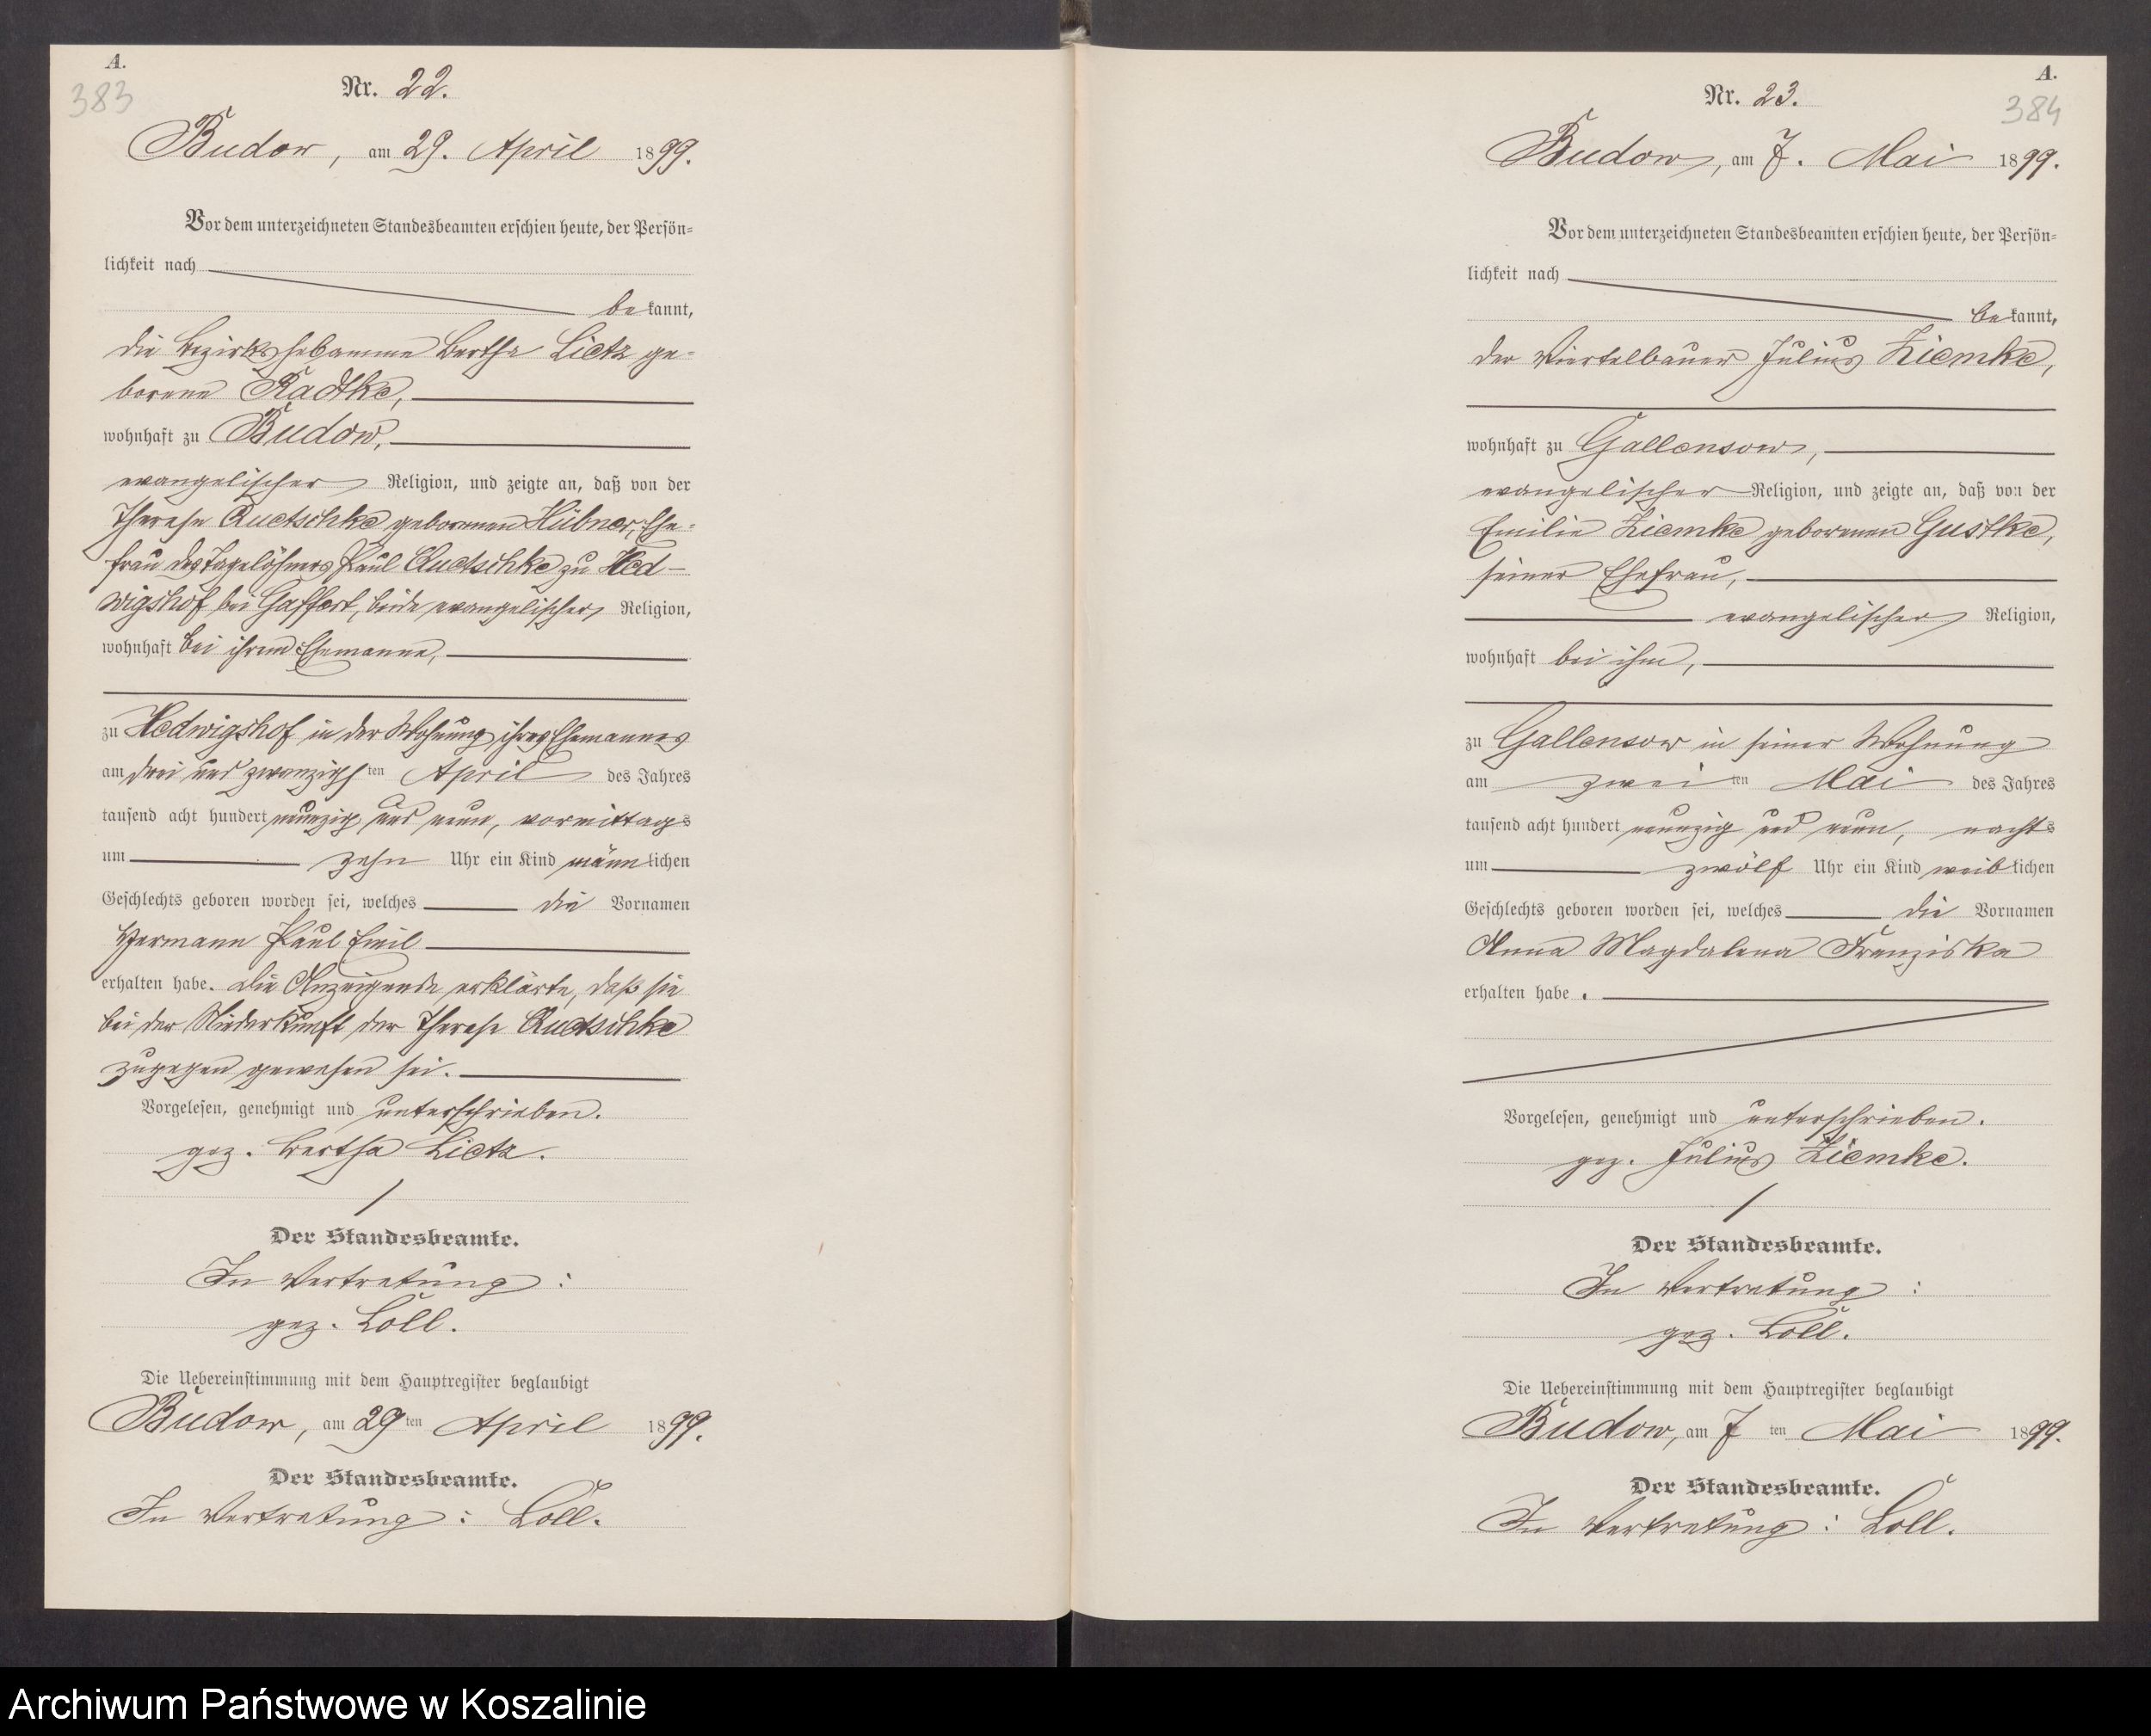 A.
383
Nr. 22.
Budow, am 29. April 1899.
Vor dem unterzeichneten Standesbeamten erschien heute, der Persön-
lichkeit nach
bekannt,
die Bezirkshebamme Bertha Lietz ge-
borene Radtke,
wohnhaft zu Budow,
evangelischer Religion, und zeigte an, daß von der
Therese Quetschke geborenen Hübner, Ehe-
frau des Tagelöhners Paul Quetschke zu Hed-
wigshof bei Gaffert, beide evangelischer Religion,
wohnhaft bei ihrem Ehemanne,
zu Hedwigshof in der Wohnung ihres Ehemannes
am drei und zwanzigsten April des Jahres
tausend acht hundert neunzig und neun, vormittags
um zehn Uhr ein Kind männlichen
Geschlechts geboren worden sei, welches die Vornamen
Hermann Paul Emil
erhalten habe. Die Anzeigende erklärte, daß sie
bei der Niederkunft der Therese Quetschke
zugegen gewesen sei.
Vorgelesen, genehmigt und unterschrieben.
gez. Bertha Lietz.
Der Standesbeamte.
In Vertretung:
gez. Loll.
Die Uebereinstimmung mit dem Hauptregister beglaubigt
Budow, am 29ten April 1899.
Der Standesbeamte.
In Vertretung: Loll.
A.
384
Nr. 23.
Budow, am 7. Mai 1899.
Vor dem unterzeichneten Standesbeamten erschien heute, der Persön-
lichkeit nach
bekannt,
der Viertelbauer Julius Ziemke,
wohnhaft zu Gallensow,
evangelischer Religion, und zeigte an, daß von der
Emilie Ziemke geborenen Gustke,
seiner Ehefrau,
evangelischer Religion,
wohnhaft bei ihm,
zu Gallensow in seiner Wohnung
am zweiten Mai des Jahres
tausend acht hundert neunzig und neun, nachts
um zwölf Uhr ein Kind weiblichen
Geschlechts geboren worden sei, welches die Vornamen
Anna Magdalena Franziska
erhalten habe.
Vorgelesen, genehmigt und unterschrieben.
gez. Julius Ziemke.
Der Standesbeamte.
In Vertretung:
gez. Loll.
Die Uebereinstimmung mit dem Hauptregister beglaubigt
Budow, am 7ten Mai 1899.
Der Standesbeamte.
In Vertretung: Loll.
Archiwum Państwowe w Koszalinie